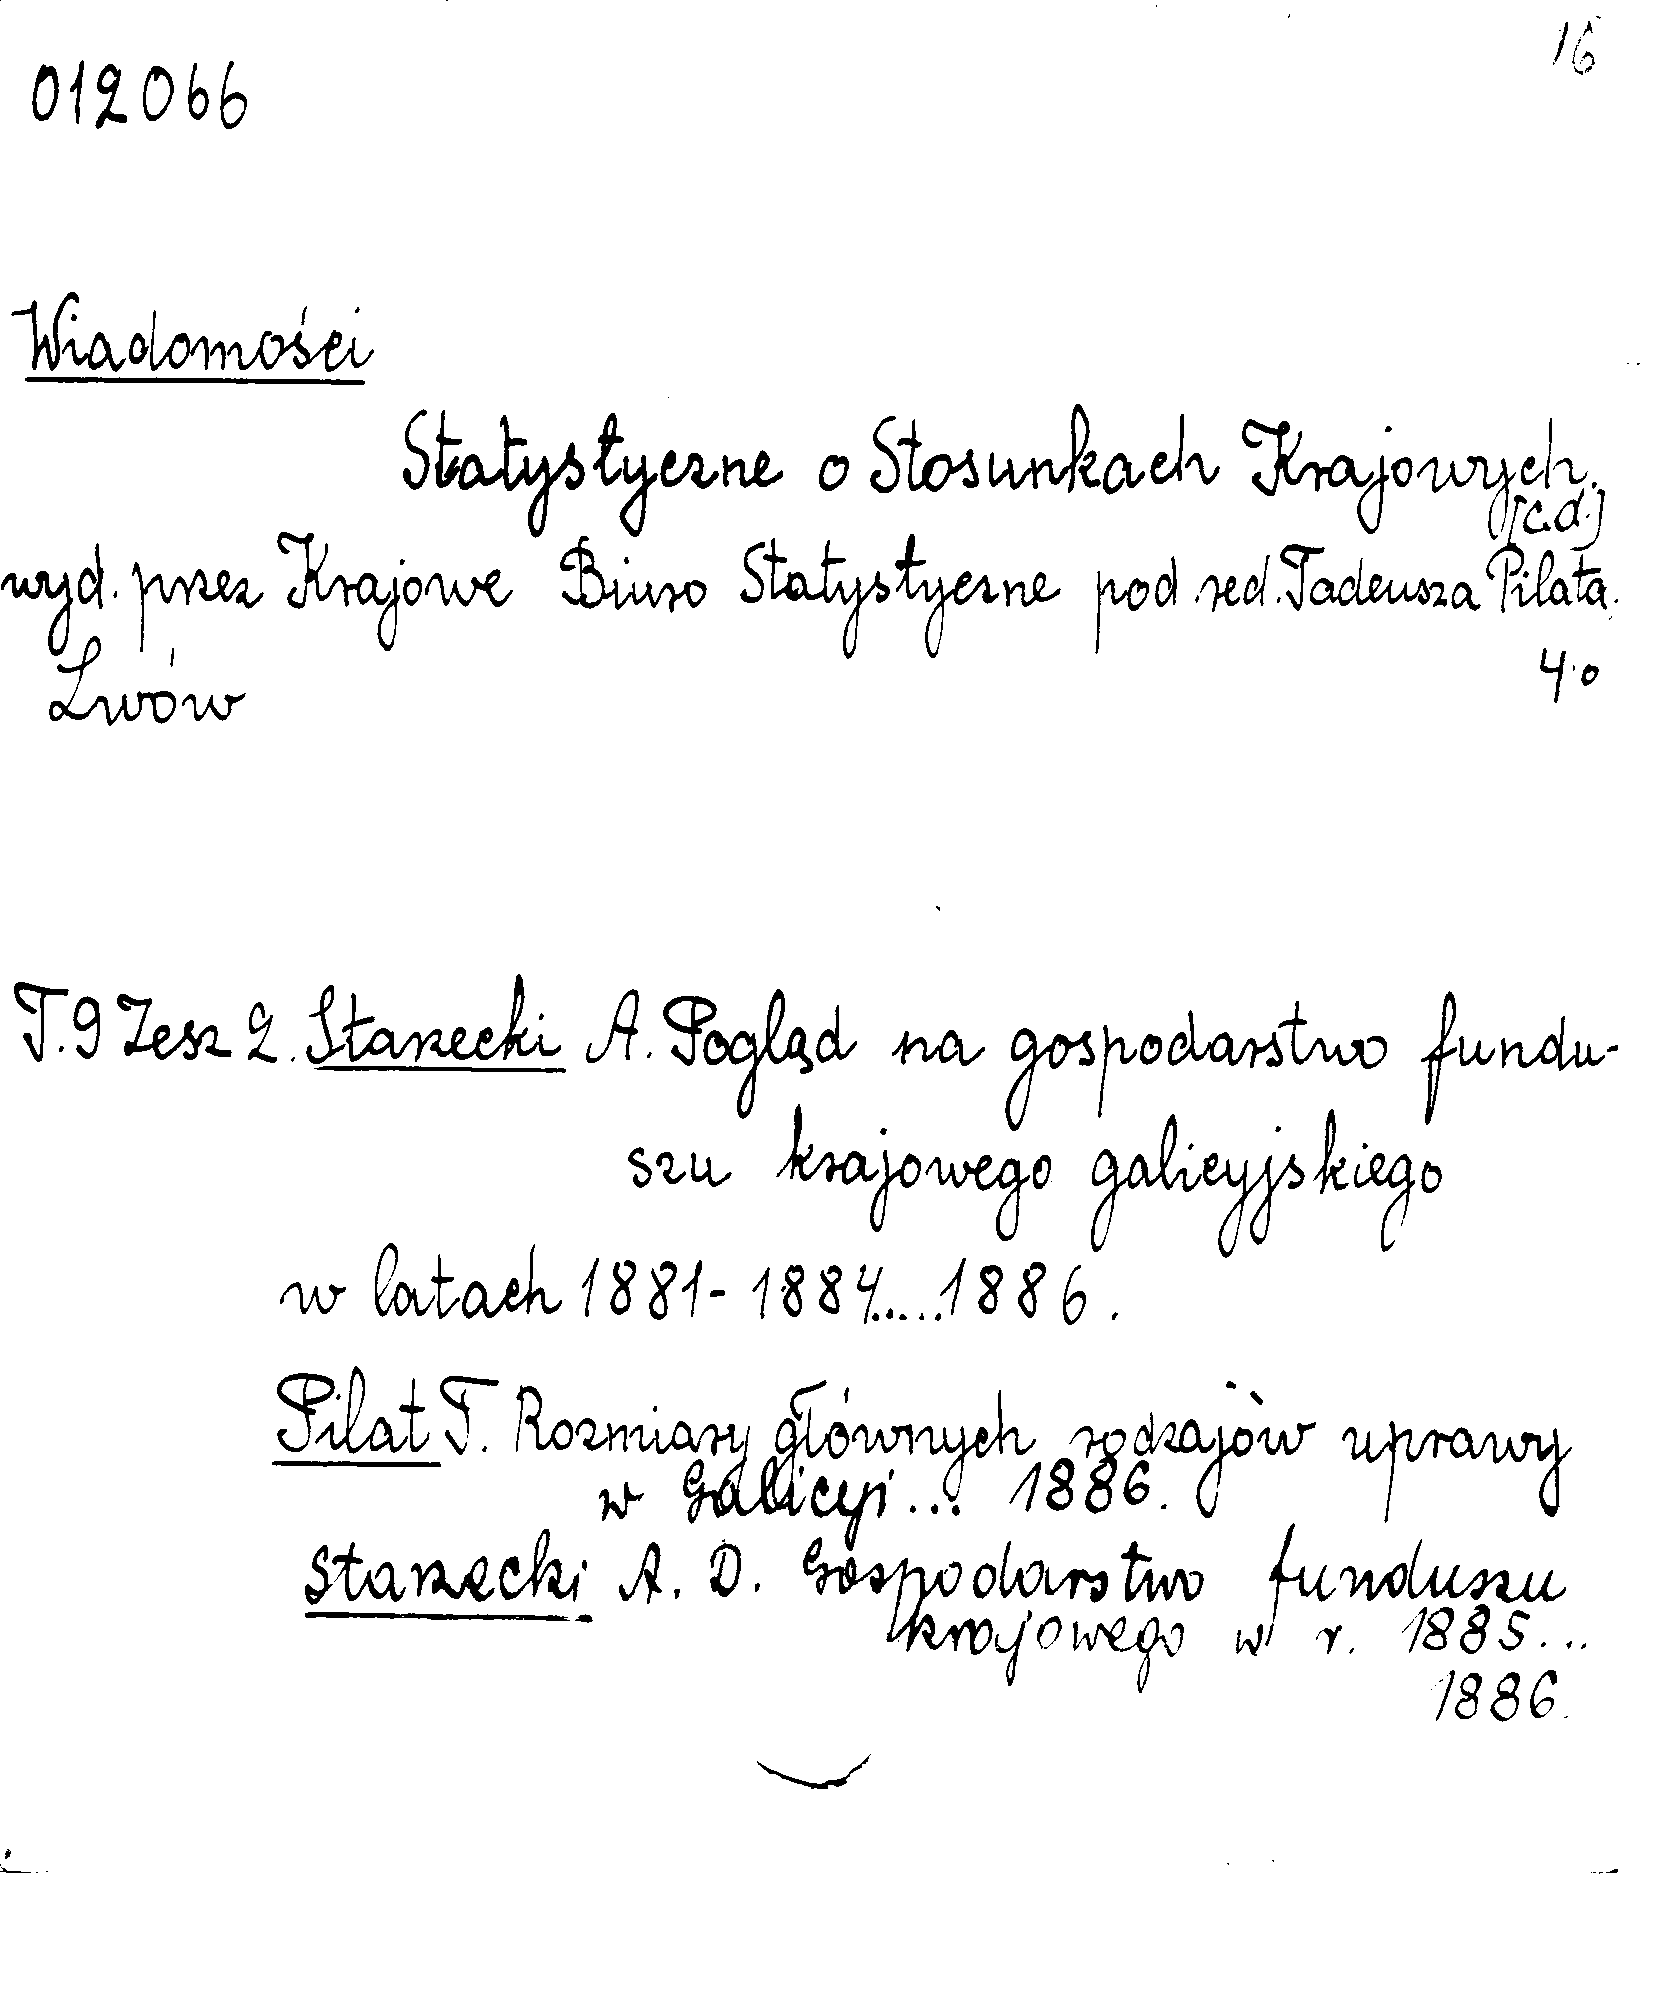 16
012066
Wiadomości
Statystyczne o Stosunkach Krajowych.
[c.d.]
wyd. przez Krajowe Biuro Statystyczne pod red. Tadeusza Pilata.
Lwów 4.o
T. 9 Zesz 2. Starzecki A. Pogląd na gospodarstwo fundu-
szu krajowego galicyjskiego
w latach 1881-1884.....1886.
Pilat T. Rozmiary głównych rodzajów uprawy
w Galicyi... 1886.
Starzecki A. D. Gospodarstwo funduszu
krajowego w r. 1885...
1886.